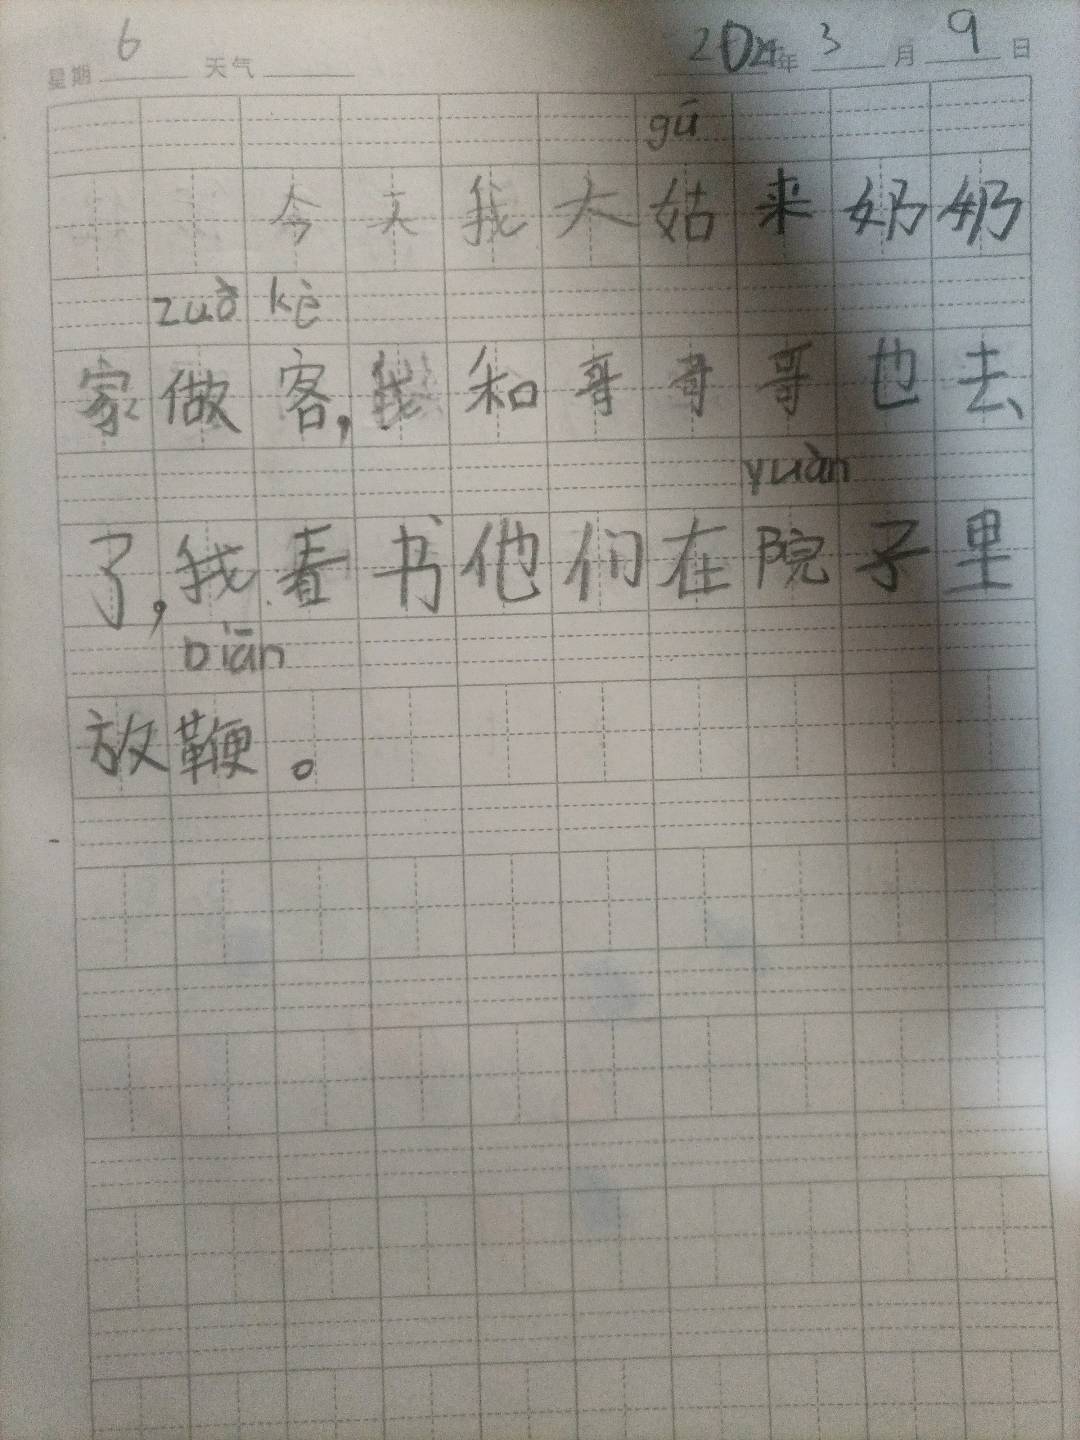 星期 6 天气 2024年 3 月 9 日
gū
今天我大姑来奶奶
zuò kè
家做客,我和哥哥哥也去
yuàn
了,我看书他们在院子里
biān
放鞭。